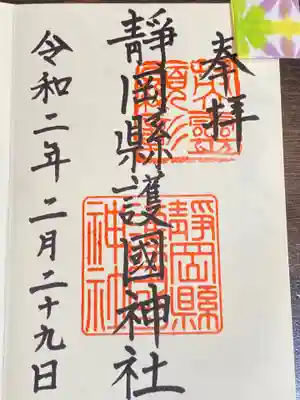 奉拝
靜岡縣護國神社
令和二年二月二十九日
靜岡縣
神社